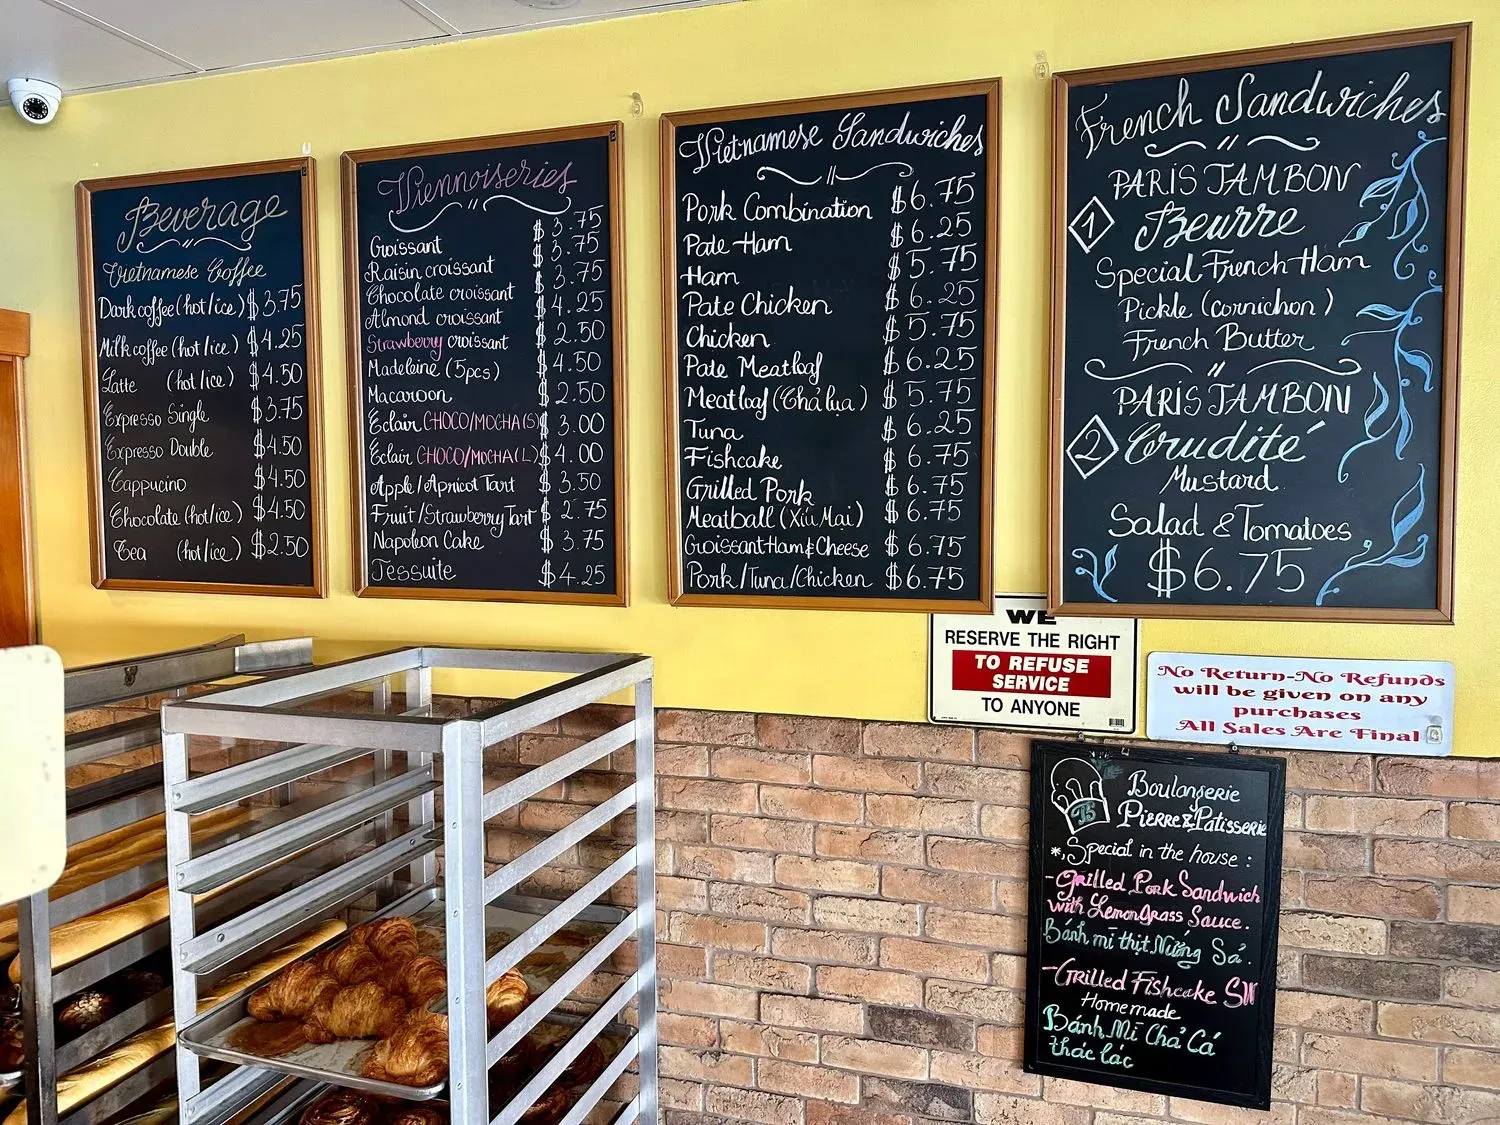 Beverage
Vietnamese Coffee
Dark coffee (hot/ice) $3.75
Milk coffee (hot/ice) $4.25
Latte (hot/ice) $4.50
Expresso Single $3.75
Expresso Double $4.50
Cappucino $4.50
Chocolate (hot/ice) $4.50
Tea (hot/ice) $2.50
Viennoiseries
Croissant $3.75
Raisin croissant $3.75
Chocolate croissant $3.75
Almond croissant $4.25
Strawberry croissant $2.50
Madeleine (5pcs) $4.50
Macaroon $2.50
Eclair CHOCO/MOCHA(S) $3.00
Eclair CHOCO/MOCHA(L) $4.00
Apple/Apricot Tart $3.50
Fruit/Strawberry Tart $2.75
Napoleon Cake $3.75
Jessuite $4.25
Vietnamese Sandwiches
Pork Combination $6.75
Pate Ham $6.25
Ham $5.75
Pate Chicken $6.25
Chicken $5.75
Pate Meatloaf $6.25
Meatloaf (Chả lụa) $5.75
Tuna $6.25
Fishcake $6.75
Grilled Pork $6.75
Meatball (Xíu Mại) $6.75
Croissant Ham & Cheese $6.75
Pork/Tuna/Chicken $6.75
French Sandwiches
PARIS JAMBON
1 Beurre
Special French Ham
Pickle (cornichon)
French Butter
PARIS JAMBON
2 Crudité
Mustard
Salad & Tomatoes
$6.75
WE
RESERVE THE RIGHT
TO REFUSE
SERVICE
TO ANYONE
No Return-No Refunds
will be given on any
purchases
All Sales Are Final
Boulangerie
Pierre & Patisserie
*, Special in the house :
- Grilled Pork Sandwich
with LemonGrass Sauce.
Bánh mì thịt Nướng Sả.
- Grilled Fishcake SW
Homemade
Bánh Mì Chả Cá
thác lác